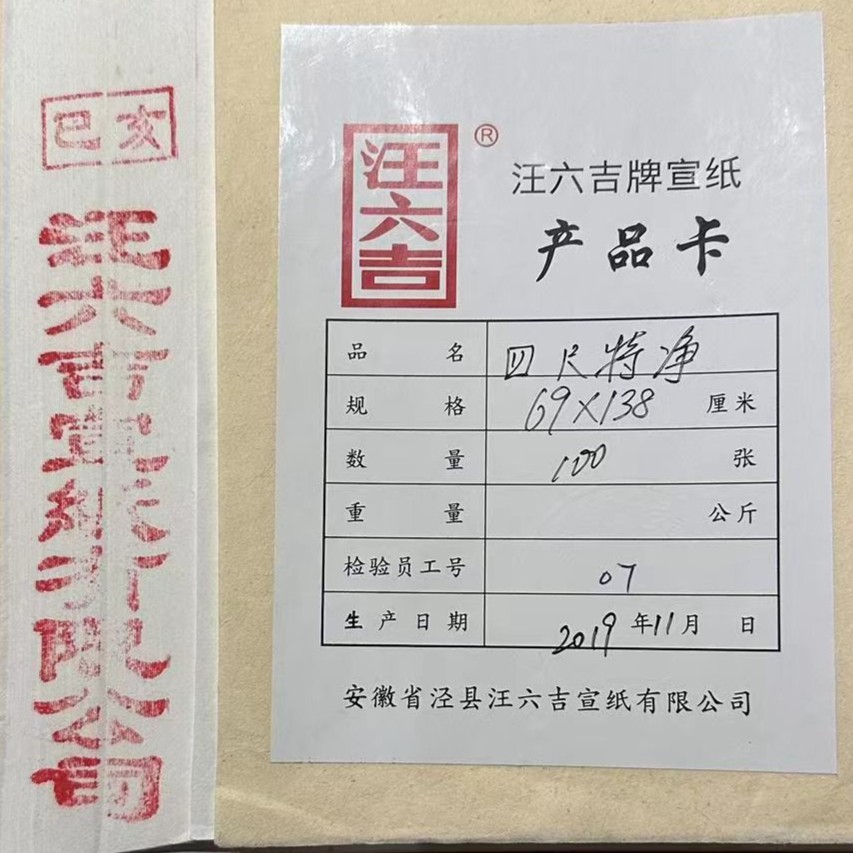 巳亥
汪六吉宣纸有限公司
汪六吉
®
汪六吉牌宣纸
产品卡
品名 四尺特净
规格 69×138 厘米
数量 100 张
重量 公斤
检验员工号 07
生产日期 2019年11月 日
安徽省泾县汪六吉宣纸有限公司